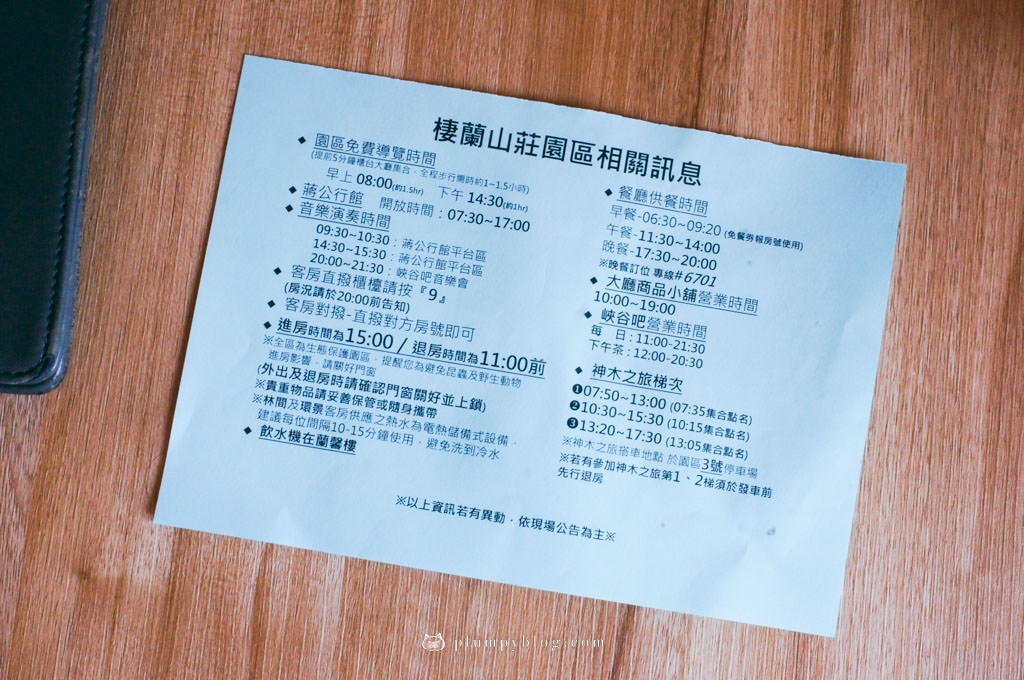 棲蘭山莊園區相關訊息
◆ 園區免費導覽時間
(提前5分鐘櫃台大廳集合，全程步行需時約1~1.5小時)
早上 08:00(約1.5hr) 下午 14:30(約1hr)
◆ 蔣公行館 開放時間：07:30~17:00
◆ 音樂演奏時間
09:30~10:30：蔣公行館平台區
14:30~15:30：蔣公行館平台區
20:00~21:30：峽谷吧音樂會
◆ 客房直撥櫃檯請按『9』
(房況請於20:00前告知)
◆ 客房對撥-直撥對方房號即可
◆ 進房時間為15:00 / 退房時間為11:00前
※全區為生態保護園區，提醒您為避免昆蟲及野生動物
進房影響，請關好門窗
(外出及退房時請確認門窗關好並上鎖)
※貴重物品請妥善保管或隨身攜帶
※林間及環景客房供應之熱水為電熱儲備式設備，
建議每位間隔10-15分鐘使用，避免洗到冷水
◆ 飲水機在蘭馨樓
◆ 餐廳供餐時間
早餐-06:30~09:20 (免餐券報房號使用)
午餐-11:30~14:00
晚餐-17:30~20:00
※晚餐訂位 專線#6701
◆ 大廳商品小舖營業時間
10:00~19:00
◆ 峽谷吧營業時間
每 日：11:00-21:30
下午茶：12:00-20:30
◆ 神木之旅梯次
❶07:50~13:00 (07:35集合點名)
❷10:30~15:30 (10:15集合點名)
❸13:20~17:30 (13:05集合點名)
※神木之旅搭車地點 於園區3號停車場
※若有參加神木之旅第1、2梯須於發車前
先行退房
※以上資訊若有異動，依現場公告為主※
plumpyblog.com